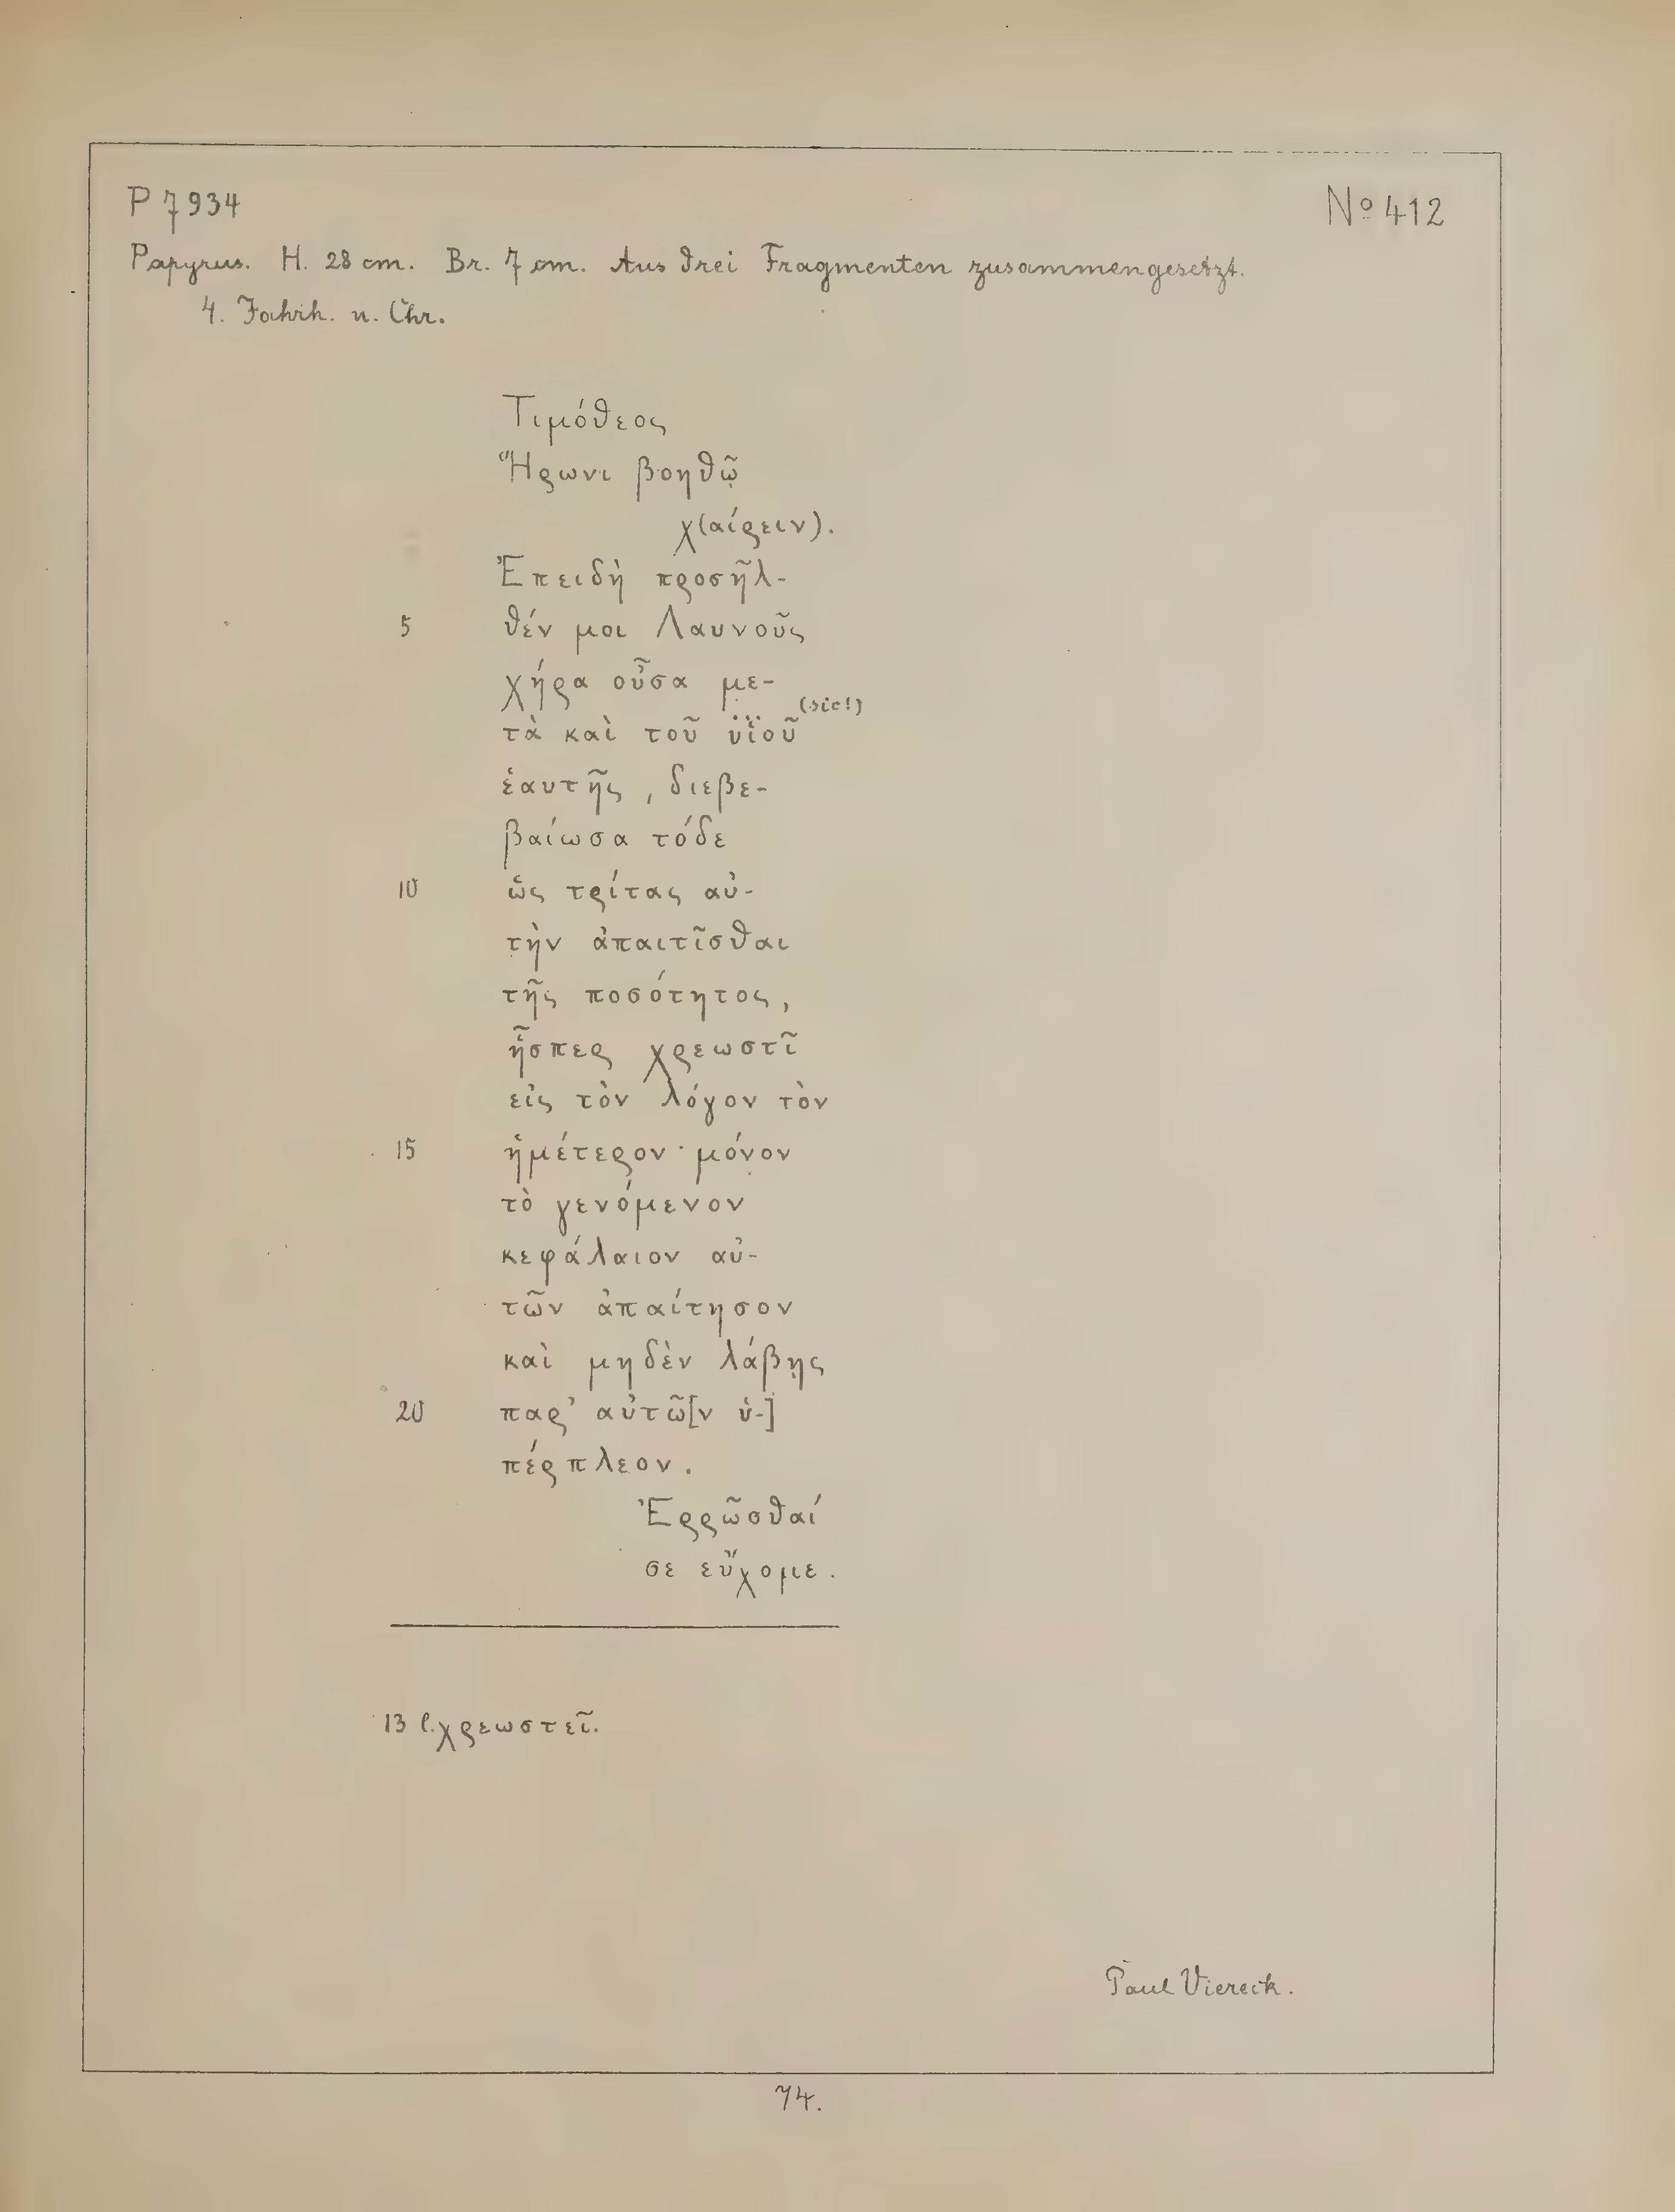 P 7934 № 412
Papyrus. H. 28 cm. Br. 7 cm. Aus drei Fragmenten zusammengesetzt.
4. Jahrh. n. Chr.
Τιμόθεος
Ἥρωνι βοηθῷ
χ(αίρειν).
Ἐπειδὴ προσῆλ-
5 θέν μοι Λαυνοῦς
χήρα οὖσα με-
τὰ καὶ τοῦ ϋἱοῦ (sic!)
ἑαυτῆς, διεβε-
βαίωσα τόδε
10 ὥς τρίτας αὐ-
τὴν ἀπαιτῖσθαι
τῆς ποσότητος,
ἧσπερ χρεωστῖ
εἰς τὸν λόγον τὸν
15 ἡμέτερον · μόνον
τὸ γενόμενον
κεφάλαιον αὐ-
τῶν ἀπαίτησον
καὶ μηδὲν λάβῃς
20 παρ’ αὐτῶ[ν ὑ-]
πέρπλεον.
Ἐρρῶσθαί
σε εὔχομε.
13 l. χρεωστεῖ.
Paul Viereck.
74.